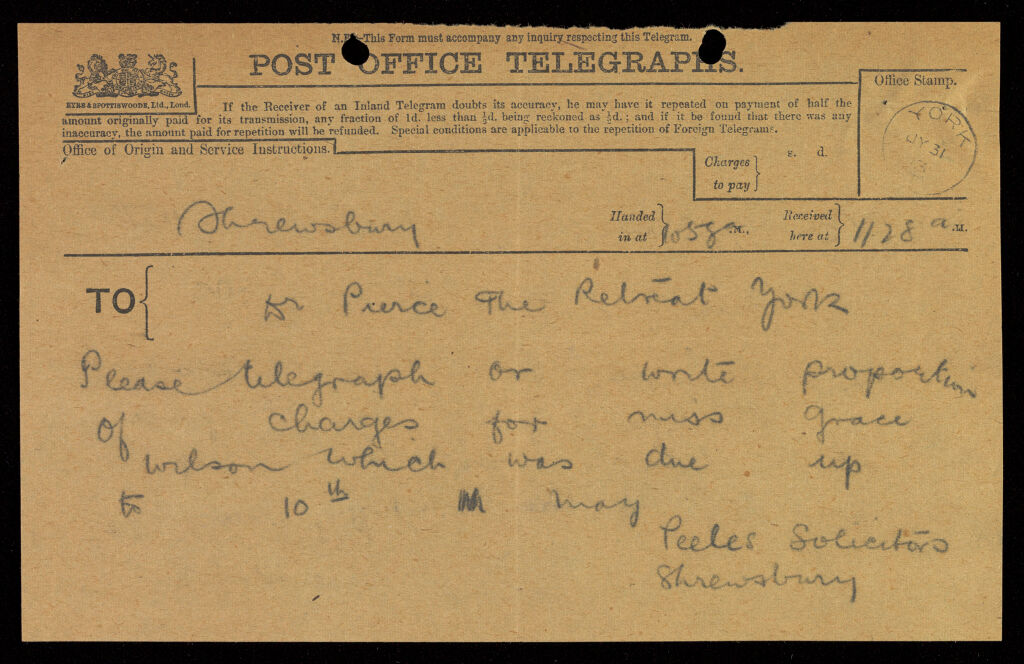 N.B.—This Form must accompany any inquiry respecting this Telegram.
POST OFFICE TELEGRAPHS.
EYRE & SPOTTISWOODE, Ltd., Lond.
If the Receiver of an Inland Telegram doubts its accuracy, he may have it repeated on payment of half the
amount originally paid for its transmission, any fraction of 1d. less than ½d. being reckoned as ½d.; and if it be found that there was any
inaccuracy, the amount paid for repetition will be refunded. Special conditions are applicable to the repetition of Foreign Telegrams.
Office of Origin and Service Instructions.
Office Stamp.
YORK
JY 31
Charges
to pay
s. d.
Shrewsbury
Handed
in at
1058 a M.,
Received
here at
1128 a M.
TO
Dr Pierce The Retreat York
Please telegraph or write proportion
of charges for miss Grace
wilson which was due up
to 10th May
Peeles Solicitors
Shrewsbury